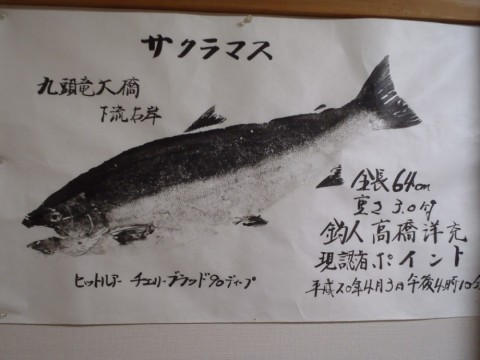 サクラマス
九頭竜大橋
下流右岸
全長64cm
重さ3.0
釣人 高橋洋充
現認者 ポイント
平成20年4月3日午後4時10分
ヒットルアー チェリーブラッド90ディープ